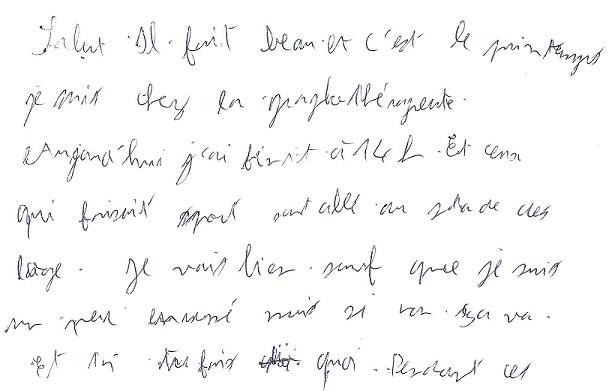 Salut. Il fait beau et c'est le printemps
je suis chez la graphothérapeute.
Aujourd'hui j'ai finit à 14 h. Et ceux
qui faisait sport sont allé au stade des
. Je vais bien sauf que je suis
un peu enrumé mais si non sa va.
Et toi tu fais quoi. Pendant ces